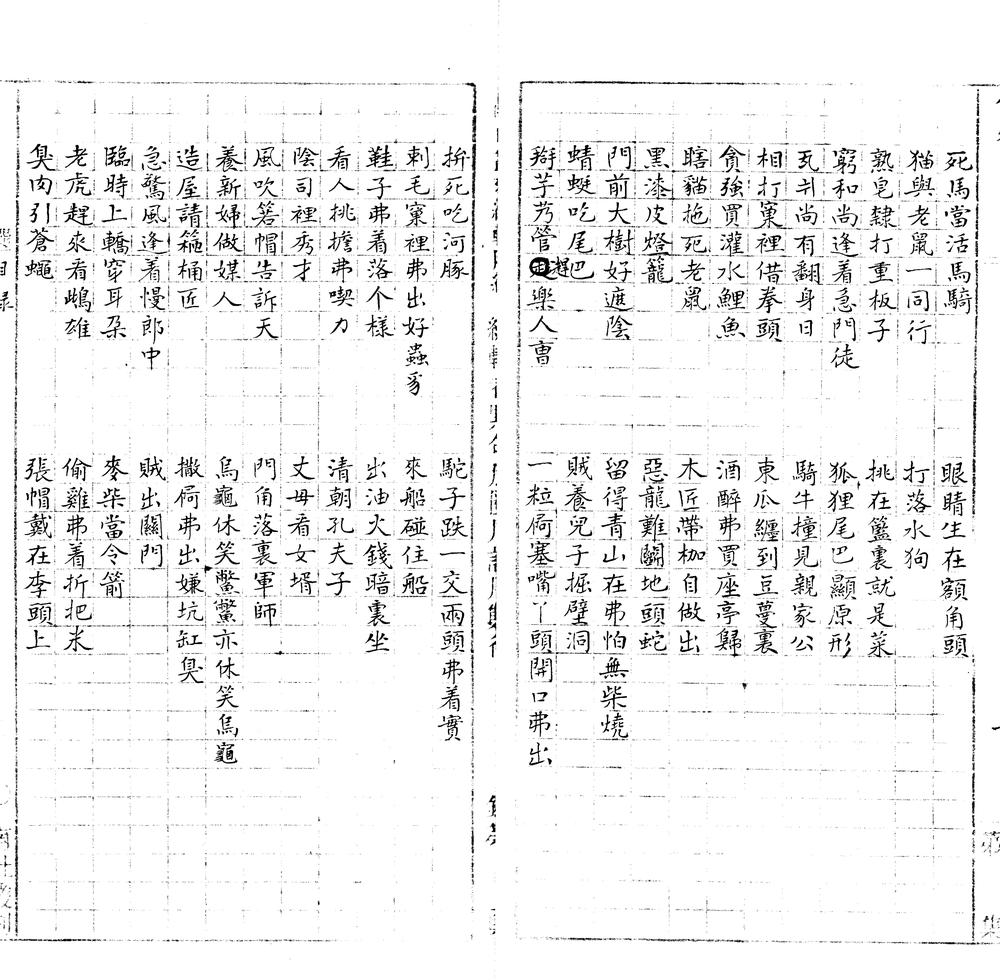 死馬當活馬騎
眼睛生在額角頭
猫與老鼠一同行
打落水狗
熟皂隸打重板子
挑在籃裏就是菜
窮和尚逢着急門徒
狐狸尾巴顯原形
瓦爿尚有翻身日
騎牛撞見親家公
相打窠裡借拳頭
東瓜纏到豆蔓裏
貪強買灌水鯉魚
酒醉弗買座亭歸
瞎貓拖死老鼠
木匠帶枷自做出
黑漆皮燈籠
惡龍難鬭地頭蛇
門前大樹好遮陰
留得青山在弗怕無柴燒
蜻蜓吃尾巴
賊養兒子掘壁洞
掰芋艿管趕樂人曹
一粒𥻦塞嘴丫頭開口弗出
拚死吃河豚
駝子跌一交兩頭弗着實
刺毛窠裡弗出好蟲豸
來船碰住船
鞋子弗着落个樣
出油火錢暗裏坐
看人挑擔弗喫力
清朝孔夫子
陰司裡秀才
丈母看女壻
風吹箬帽告訴天
門角落裏軍師
養新婦做媒人
烏龜休笑鱉鱉亦休笑烏龜
造屋請箍桶匠
撒屙弗出嫌坑缸臭
急驚風逢着慢郎中
賊出關門
臨時上轎穿耳朵
麥柴當令箭
老虎趕來看鴟雄
偷雞弗着折把米
臭肉引蒼蠅
張帽戴在李頭上